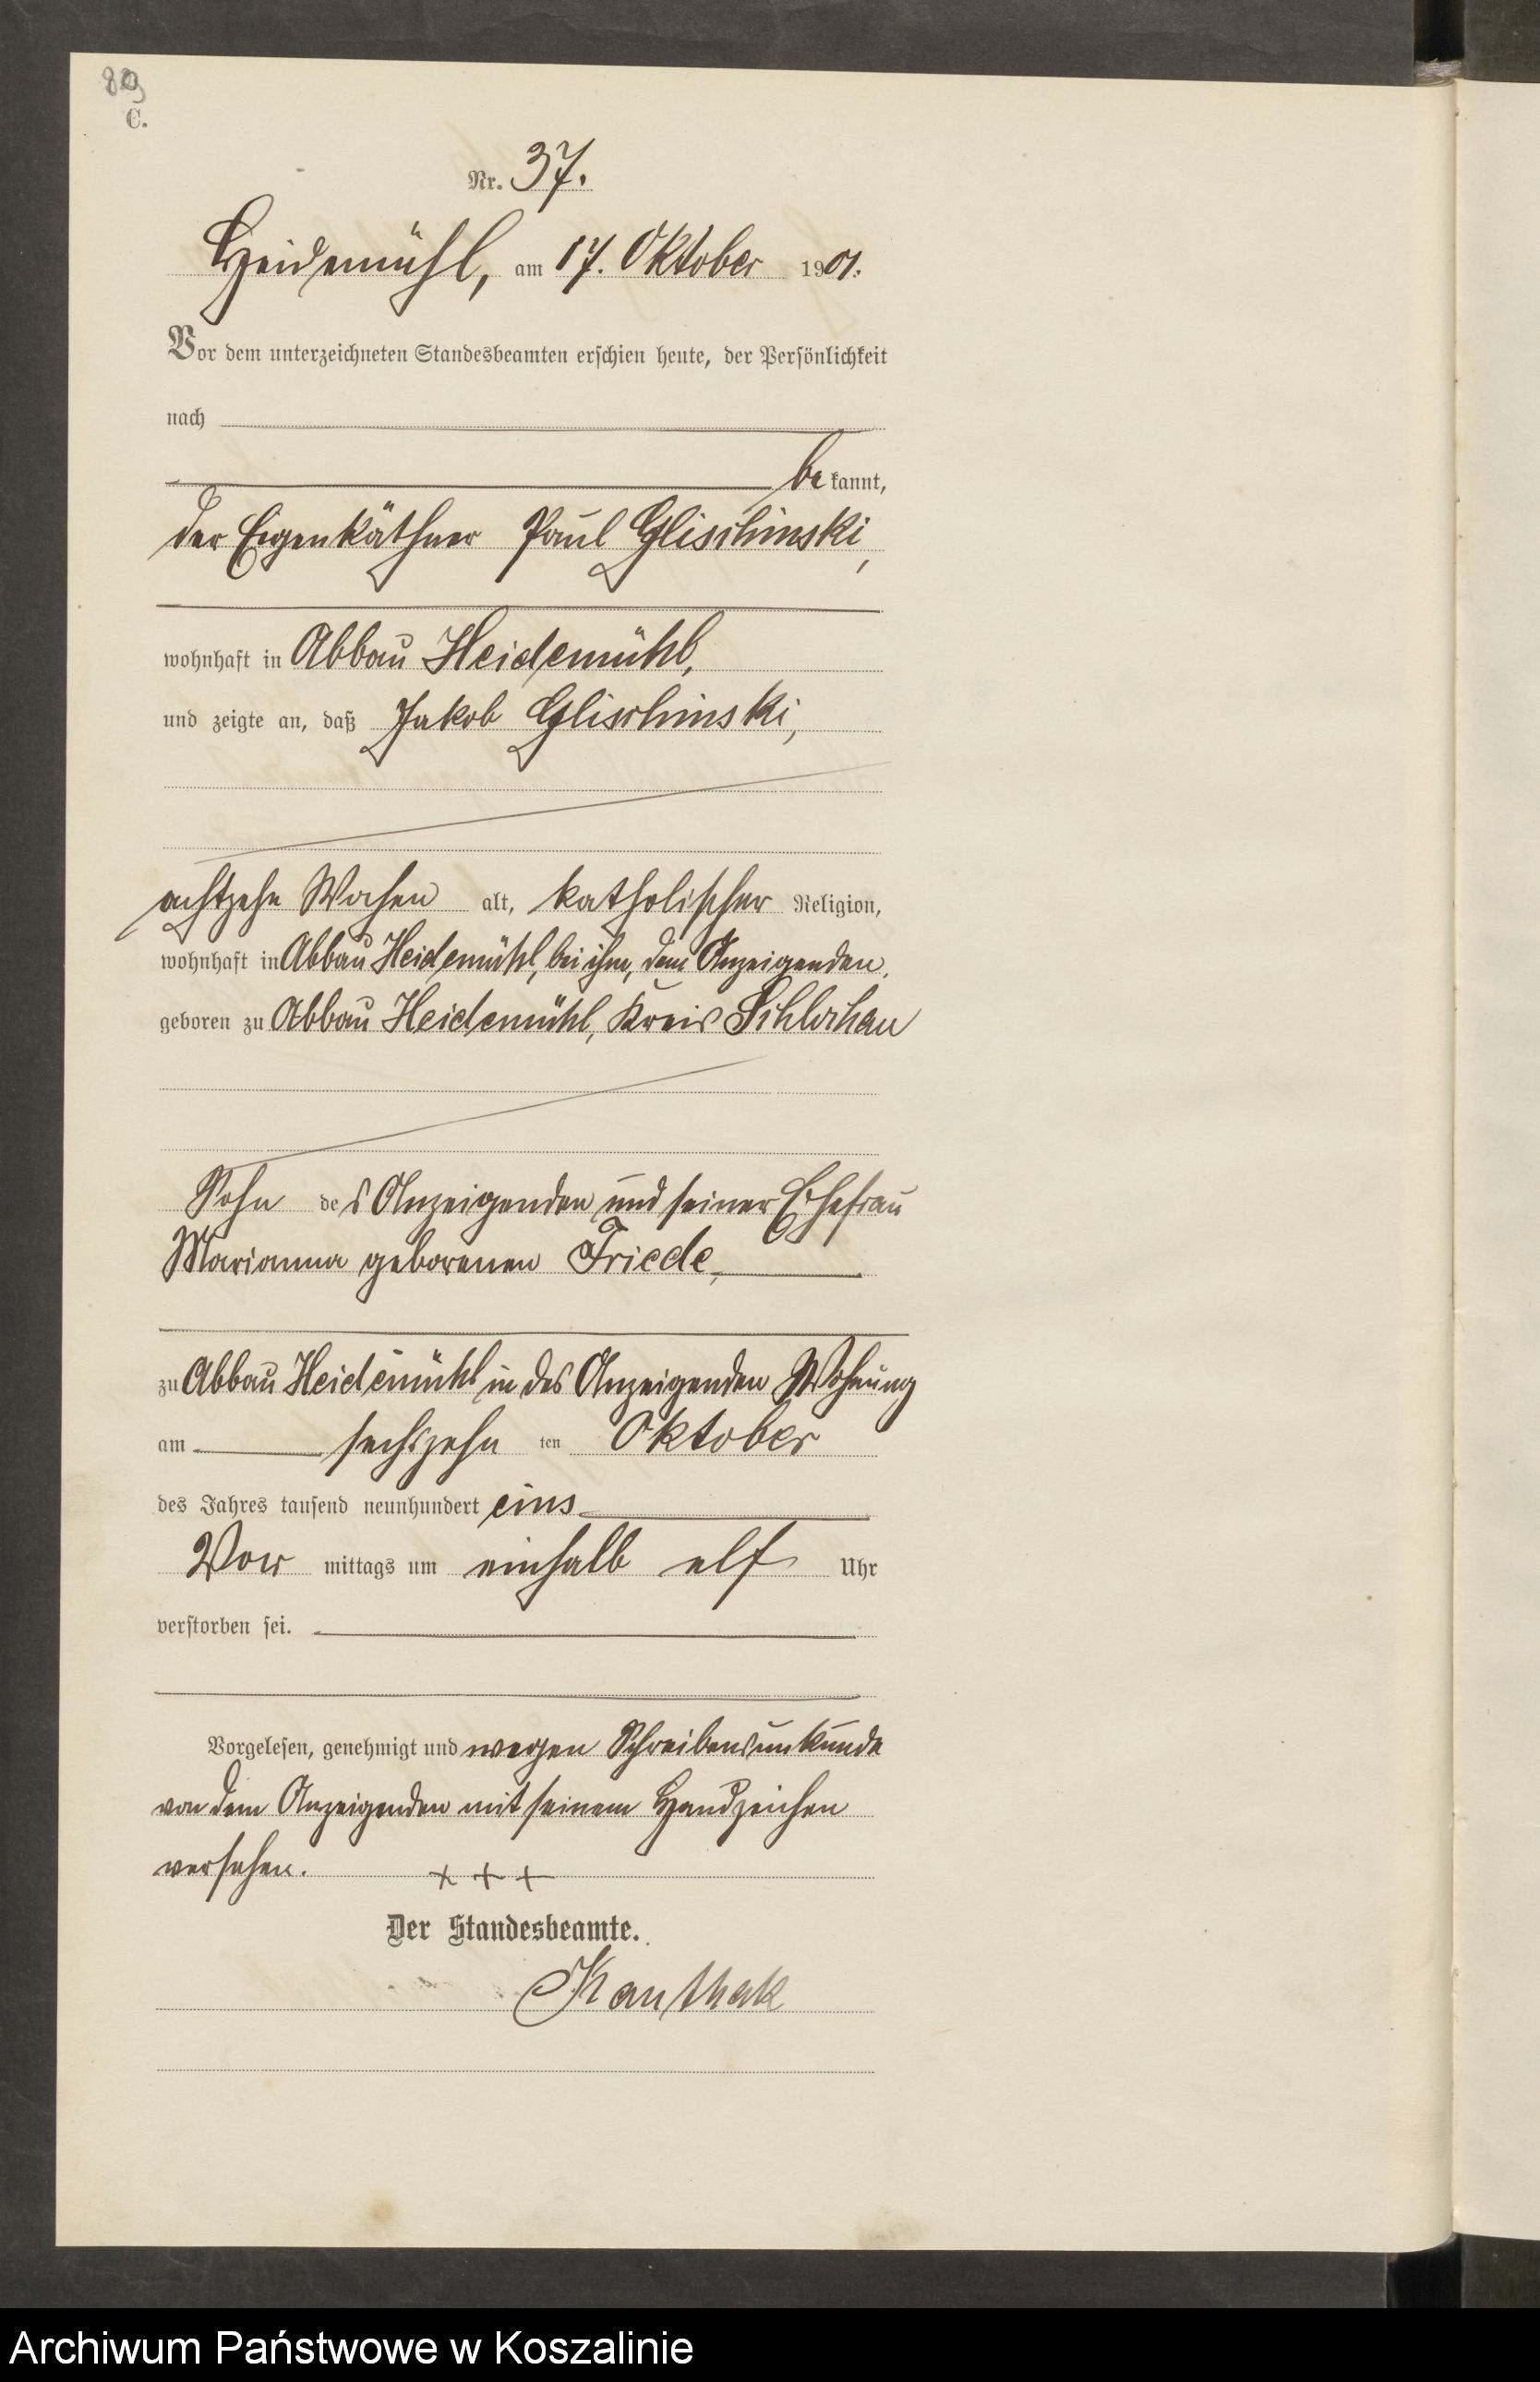 C.
Nr. 37.
Heidemühl, am 17. Oktober 1901.
Vor dem unterzeichneten Standesbeamten erschien heute, der Persönlichkeit
nach
be kannt,
der Eigenkäthner Paul Glischinski,
wohnhaft in Abbau Heidemühl,
und zeigte an, daß Jakob Glischinski,
achtzehn Wochen alt, katholischer Religion,
wohnhaft in Abbau Heidemühl, bei ihm, dem Anzeigenden,
geboren zu Abbau Heidemühl, Kreis Schlochau
Sohn des Anzeigenden und seiner Ehefrau
Marianna geborenen Friede,
zu Abbau Heidemühl in des Anzeigenden Wohnung
am sechszehn ten Oktober
des Jahres tausend neunhundert eins
Vor mittags um einhalb elf Uhr
verstorben sei.
Vorgelesen, genehmigt und wegen Schreibensunkunde
von dem Anzeigenden mit seinem Handzeichen
versehen. + + +
Der Standesbeamte.
Kanthak
Archiwum Państwowe w Koszalinie